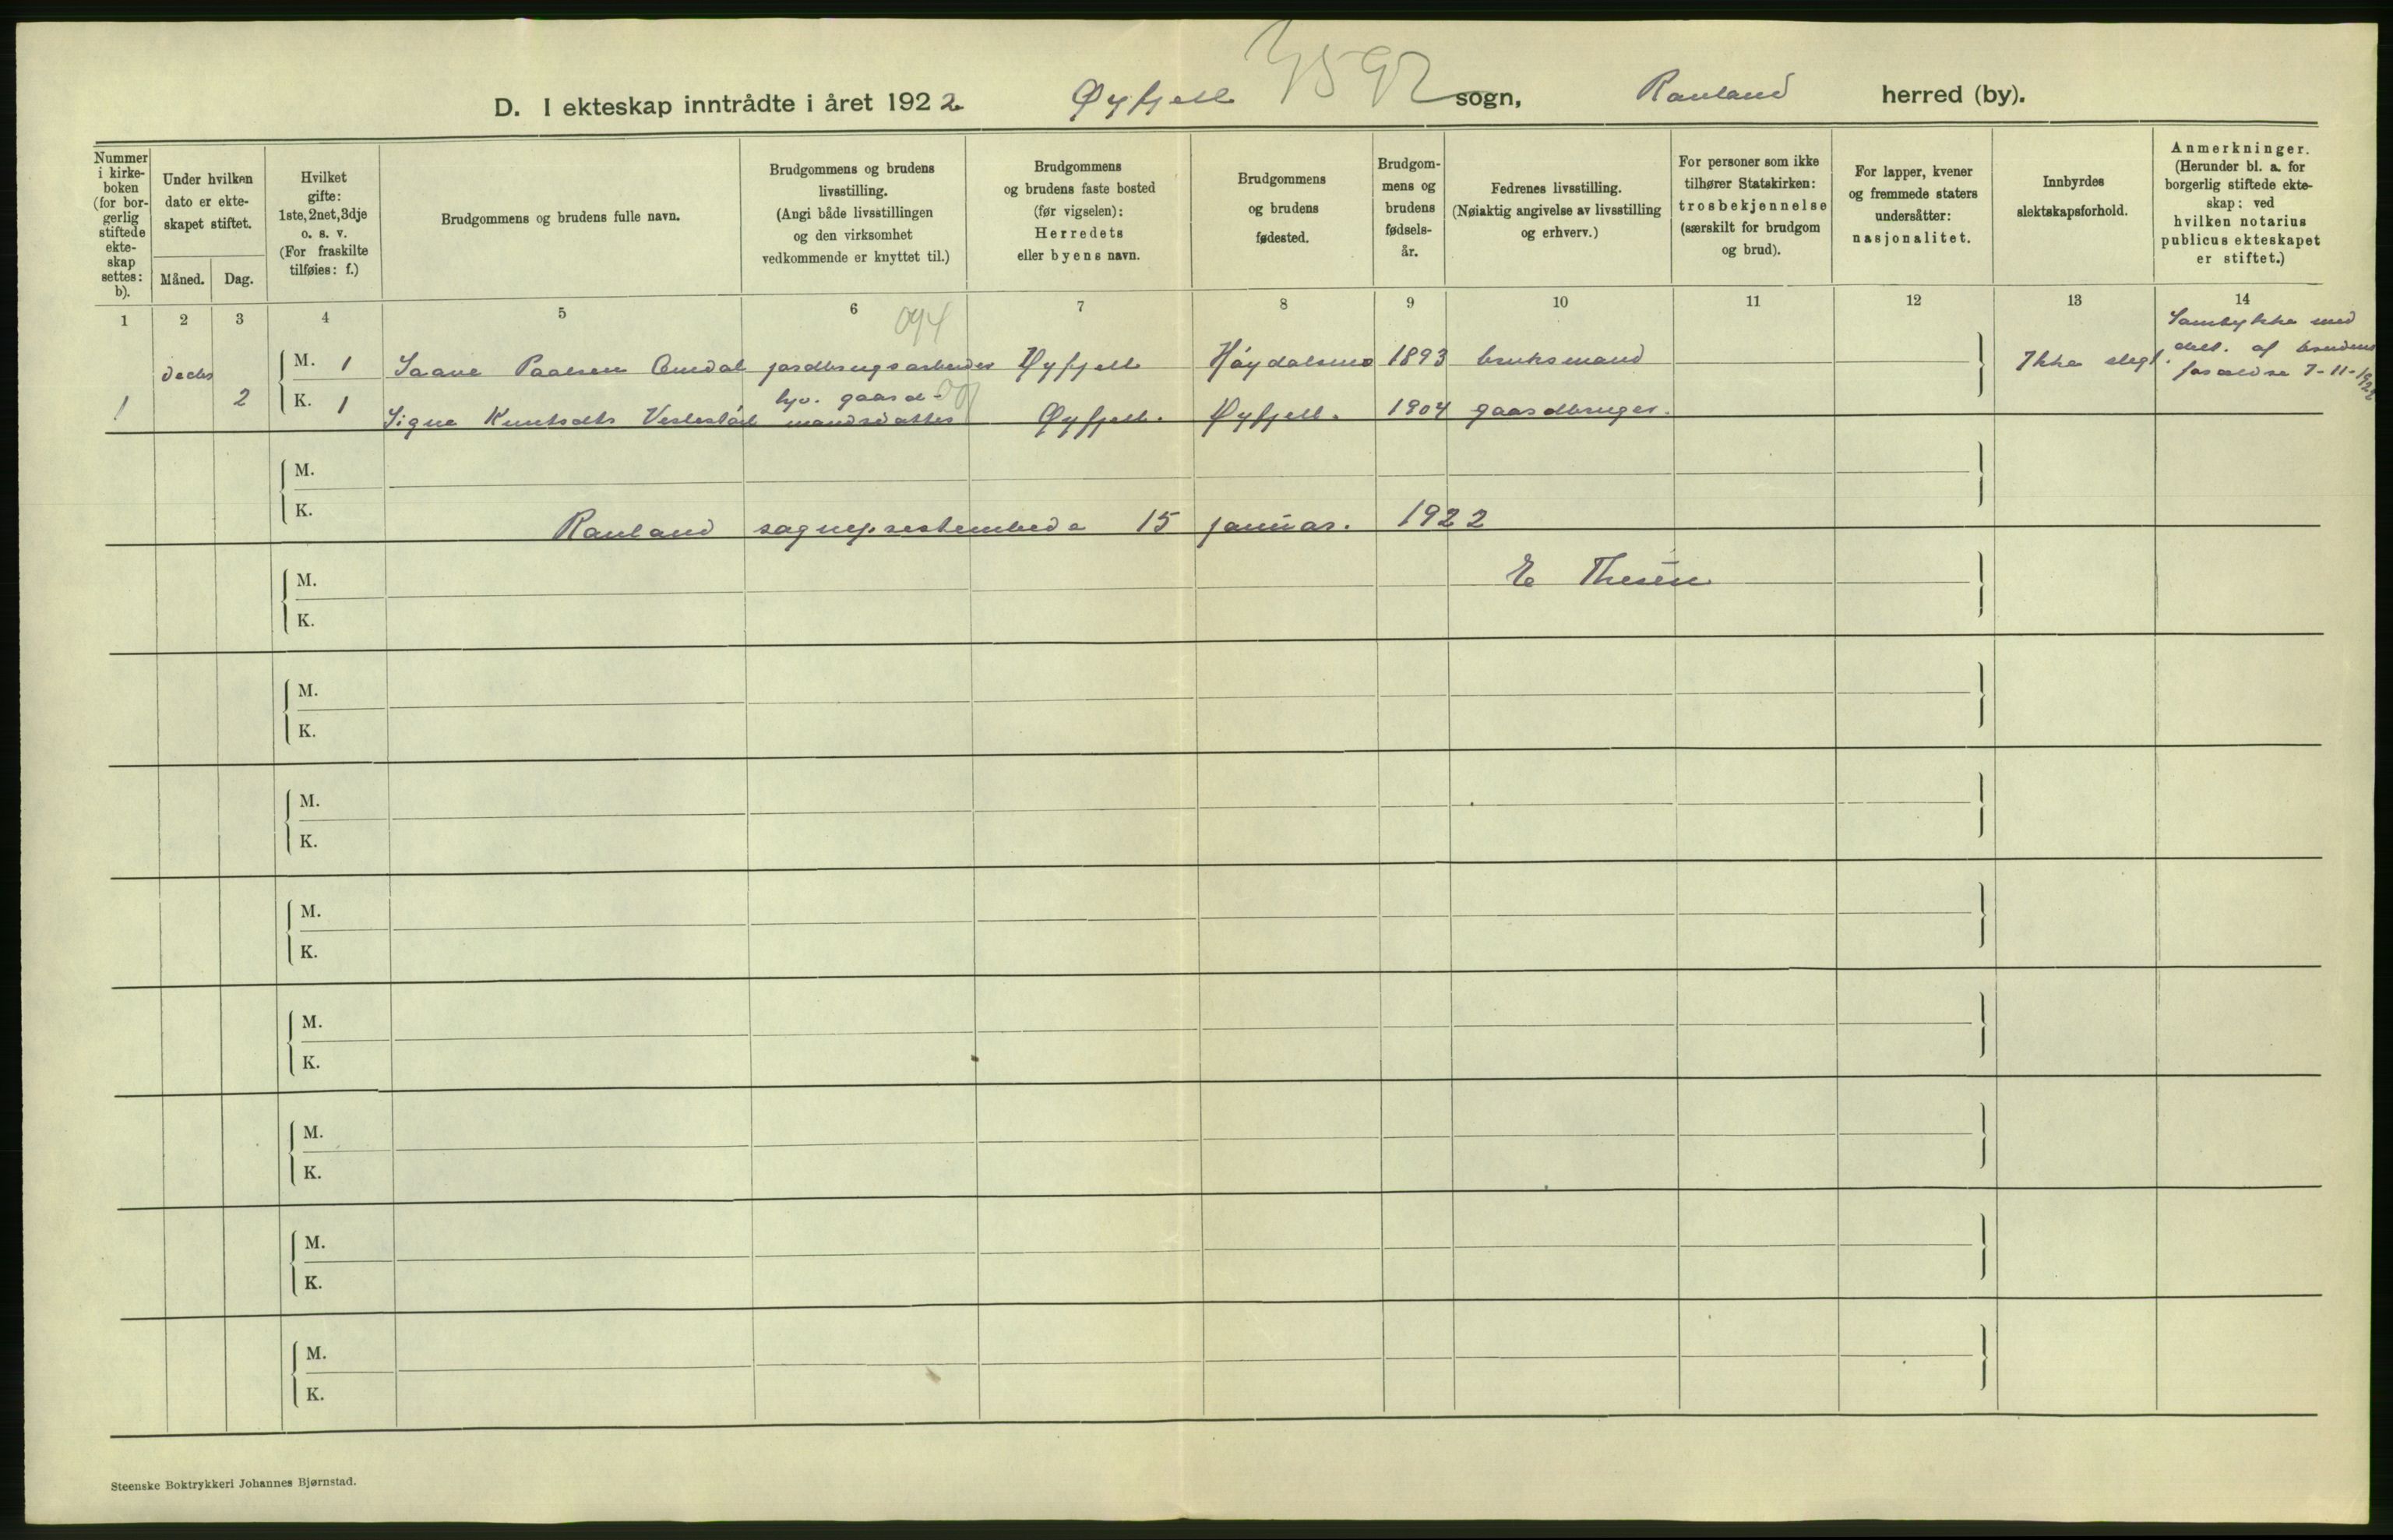 D. I ekteskap inntrådte i året 1922 Øyfjell sogn, Rauland herred (by).
Nummer i kirke-boken (for bor-gerlig stiftede ekte-skap settes: b).
Under hvilken dato er ekte-skapet stiftet.
Måned. Dag.
Hvilket gifte: 1ste, 2net, 3dje o. s. v. (For fraskilte tilføies: f.)
Brudgommens og brudens fulle navn.
Brudgommens og brudens livsstilling. (Angi både livsstillingen og den virksomhet vedkommende er knyttet til.)
Brudgommens og brudens faste bosted (før vigselen): Herredets eller byens navn.
Brudgommens og brudens fødested.
Brudgom-mens og brudens fødsels-år.
Fedrenes livsstilling. (Nøiaktig angivelse av livsstilling og erhverv.)
For personer som ikke tilhører Statskirken: trosbekjennelse (særskilt for brudgom og brud).
For lapper, kvener og fremmede staters undersåtter: nasjonalitet.
Innbyrdes slektskapsforhold.
Anmerkninger. (Herunder bl. a. for borgerlig stiftede ekte-skap: ved hvilken notarius publicus ekteskapet er stiftet.)
1 2 3 4 5 6 7 8 9 10 11 12 13 14
Samtykke med
decbr M. 1 Saave Paalsen Omdal jordbrugsarbeider Øyfjell Høydalsmo 1893 bruksmand Ikke slegt. af brudens
hjv. gaard- forældre 7-11-1922
1 2 K. 1 Signe Knutsdtr mandsdatter Øyfjell. Øyfjell. 1904 gaardbruger.
M.
K.
Rauland sogneprestembede 15 januar. 1922
M. E Thesen
K.
M.
K.
M.
K.
M.
K.
M.
K.
M.
K.
M.
K.
M.
K.
Steenske Boktrykkeri Johannes Bjørnstad.